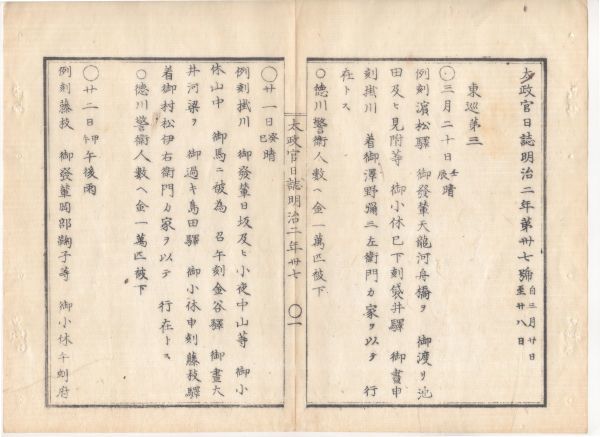 太政官日誌明治二年第卅七號 自三月廿日至廿八日
東巡第三
○三月二十日壬辰晴
例刻濱松驛 御發輦天龍河舟橋ヲ 御渡リ池
田及ヒ見附等 御小休巳下刻袋井驛 御晝申
刻掛川 着御澤野彌三左衞門カ家ヲ以テ 行
在トス
○德川警衞人數ヘ金一萬匹被下
太政官日誌明治二年卅七 ○一
○廿一日癸巳晴
例刻掛川 御發輦日坂及ヒ小夜中山等 御小
休山中 御馬ニ被為 召午刻金谷驛 御晝大
井河梁ヲ 御過キ島田驛 御小休申刻藤枝驛
着御村松伊右衞門カ家ヲ以テ 行在トス
○德川警衞人數ヘ金一萬匹被下
○廿二日甲午午後雨
例刻藤枝 御發輦岡部鞠子等 御小休午刻府